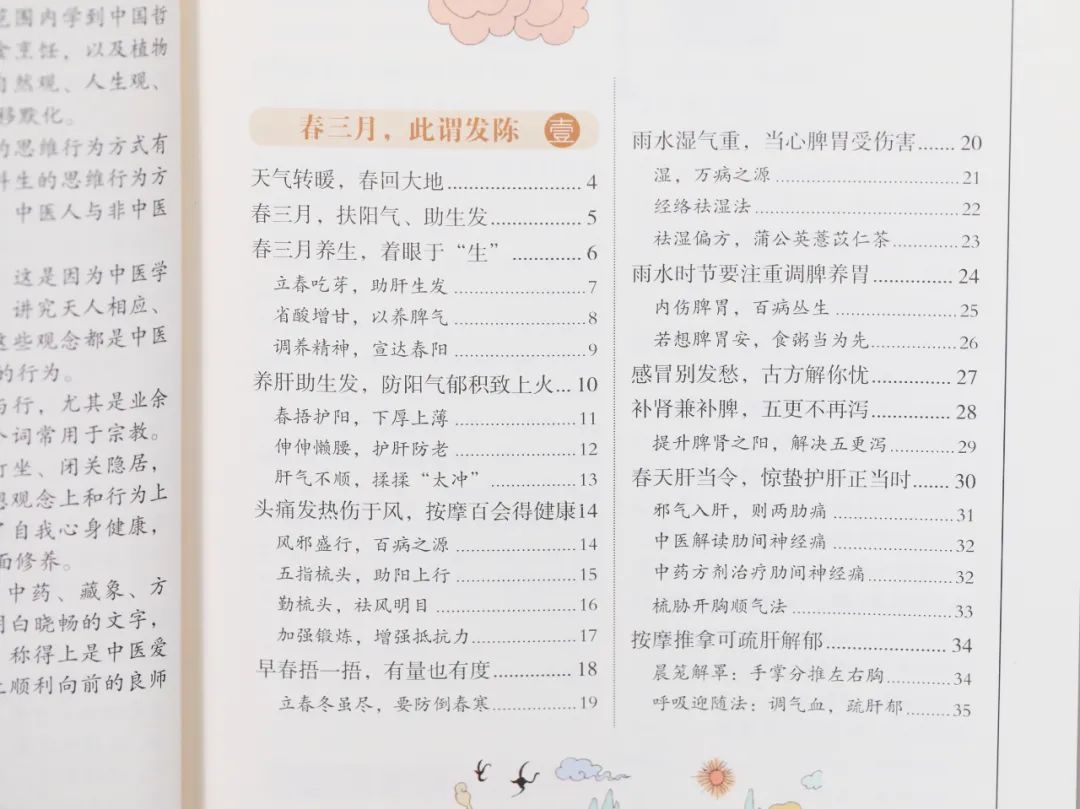 范围内学到中国哲
食烹饪，以及植物
自然观、人生观、
移默化。
的思维行为方式有
科生的思维行为方
中医人与非中医
这是因为中医学
讲究天人相应、
这些观念都是中医
的行为。
与行，尤其是业余
个词常用于宗教。
打坐、闭关隐居，
思观念上和行为上
了自我心身健康，
面修养。
中药、藏象、方
明白晓畅的文字，
称得上是中医爱
上顺利向前的良师
春三月，此谓发陈 壹
天气转暖，春回大地......4
春三月，扶阳气、助生发......5
春三月养生，着眼于“生”......6
立春吃芽，助肝生发......7
省酸增甘，以养脾气......8
调养精神，宣达春阳......9
养肝助生发，防阳气郁积致上火...10
春捂护阳，下厚上薄......11
伸伸懒腰，护肝防老......12
肝气不顺，揉揉“太冲”......13
头痛发热伤于风，按摩百会得健康14
风邪盛行，百病之源......14
五指梳头，助阳上行......15
勤梳头，祛风明目......16
加强锻炼，增强抵抗力......17
早春捂一捂，有量也有度......18
立春冬虽尽，要防倒春寒......19
雨水湿气重，当心脾胃受伤害......20
湿，万病之源......21
经络祛湿法......22
祛湿偏方，蒲公英薏苡仁茶......23
雨水时节要注重调脾养胃......24
内伤脾胃，百病丛生......25
若想脾胃安，食粥当为先......26
感冒别发愁，古方解你忧......27
补肾兼补脾，五更不再泻......28
提升脾肾之阳，解决五更泻......29
春天肝当令，惊蛰护肝正当时......30
邪气入肝，则两肋痛......31
中医解读肋间神经痛......32
中药方剂治疗肋间神经痛......32
梳胁开胸顺气法......33
按摩推拿可疏肝解郁......34
晨笼解罩：手掌分推左右胸......34
呼吸迎随法：调气血，疏肝郁......35